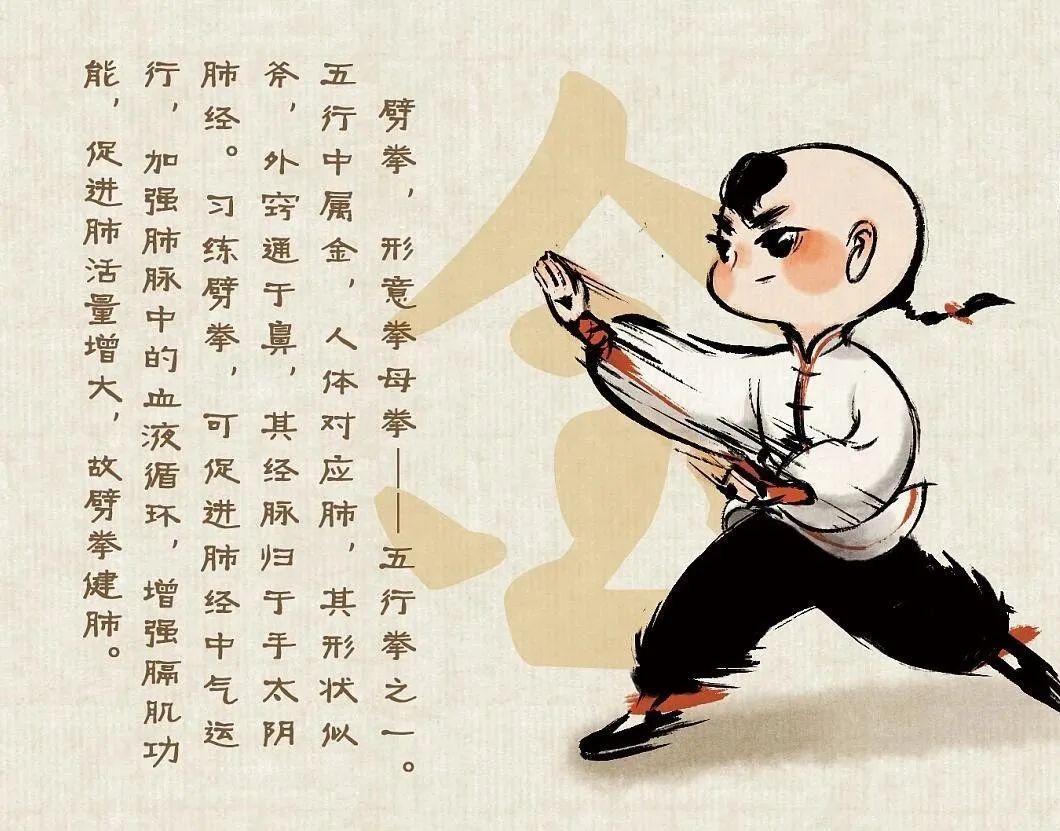 劈拳，形意拳母拳——五行拳之一。
五行中属金，人体对应肺，其形状似
斧，外窍通于鼻，其经脉归于手太阴
肺经。习练劈拳，可促进肺经中气运
行，加强肺脉中的血液循环，增强膈肌功
能，促进肺活量增大，故劈拳健肺。
金